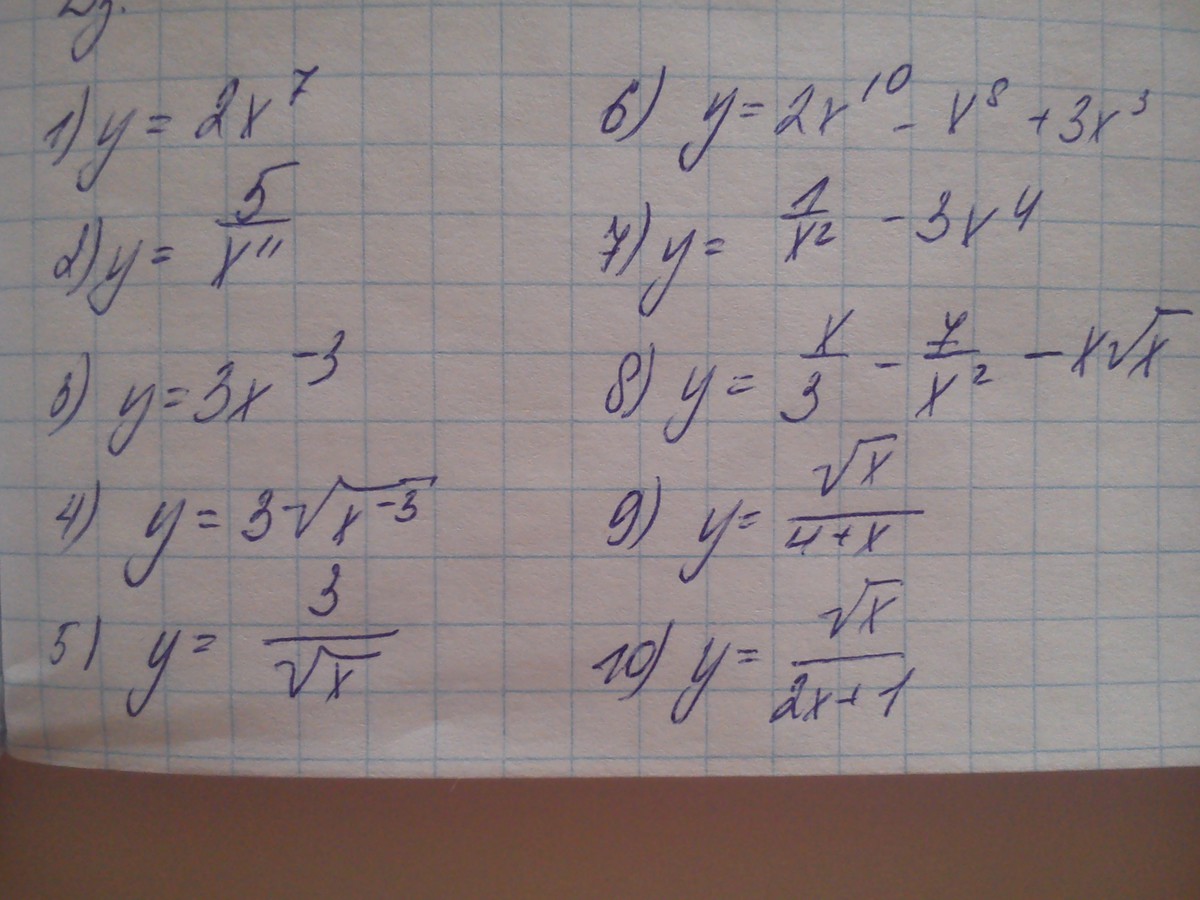 1) y = 2x⁷
2) y = 5/x¹¹
3) y = 3x⁻³
4) y = 3√(x⁻³)
5) y = 3/√x
6) y = 2x¹⁰ - x⁸ + 3x³
7) y = 1/x² - 3x⁴
8) y = x/3 - 7/x² - x√x
9) y = √x/(4+x)
10) y = √x/(2x+1)